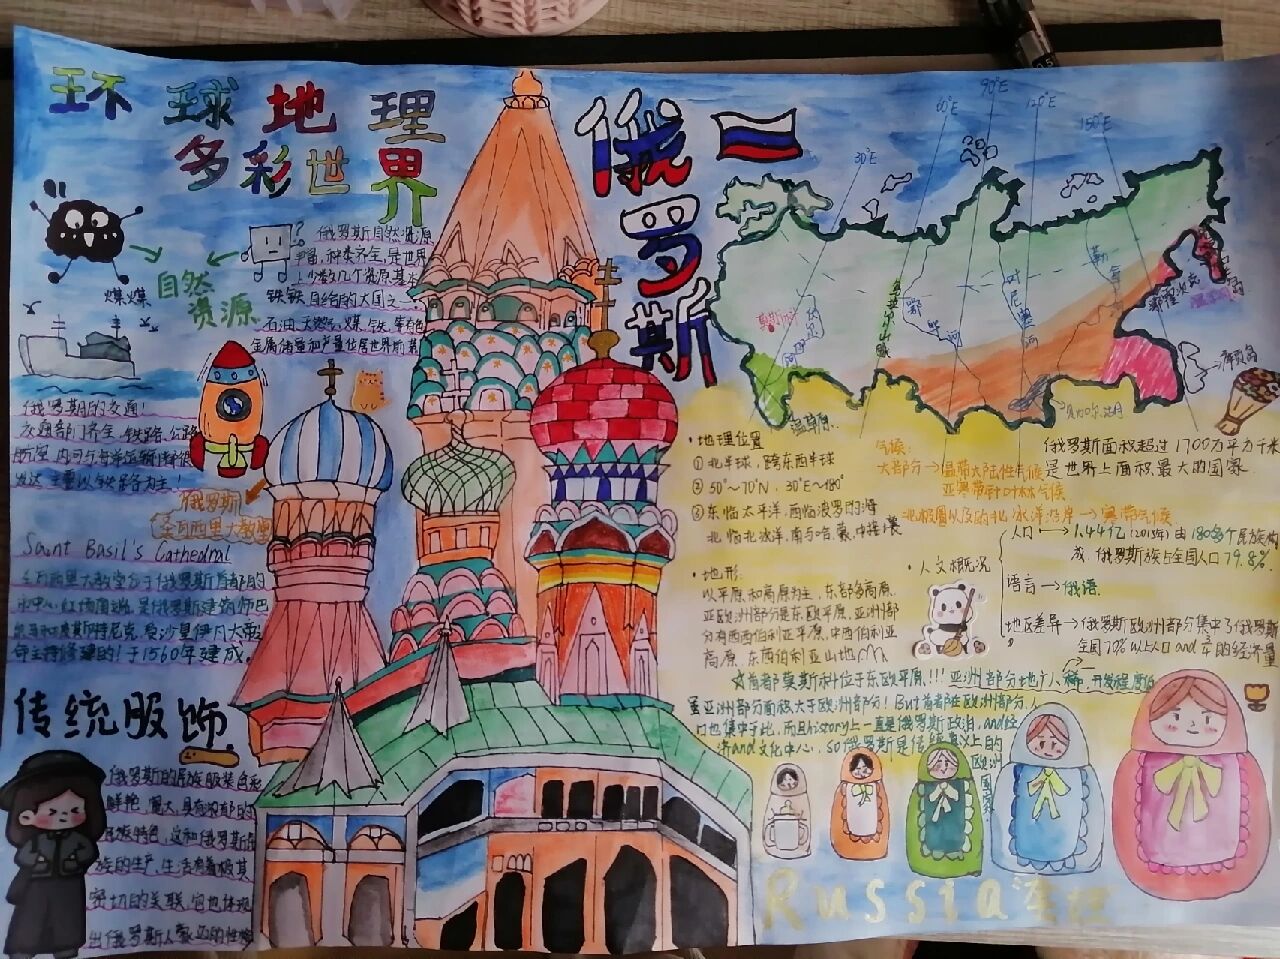 环球地理
多彩世界
俄罗斯
30°E
60°E
90°E
120°E
150°E
煤煤
自然
资源
铁铁
俄罗斯自然资源
丰富，种类齐全，是世界
上少数几个资源基本
自给的大国之一
石油、天然气、煤、铁、等有色
金属储量和产量位居世界前茅
俄罗斯的交通！
交通部门齐全，铁路、公路
发达 主要以铁路为主！
俄罗斯
圣瓦西里大教堂
Saint Basil's Cathedral
圣瓦西里大教堂位于俄罗斯首都的
市中心，红场南端，是俄罗斯建筑师巴
命主持修建的！于1560年建成。
传统服饰
俄罗斯的民族服装色彩
鲜艳、宽大，具有浓郁的
民族特色，这和俄罗斯民
族的生产、生活有着极其
密切的关联，它也体现
出俄罗斯人
莫斯科
乌拉尔山脉
鄂毕河
叶尼塞河
勒拿河
贝加尔湖
库页岛
温草原
·地理位置
① 北半球，跨东西半球
② 50°~70°N，30°E~180°
③ 东临太平洋，西临波罗的海
北临北冰洋，南与哈、蒙、中接壤
气候：
大部分→温带大陆性气候
亚寒带针叶林气候
北极圈以及的北冰洋沿岸→寒带气候
俄罗斯面积超过1700万平方千米
是世界上面积最大的国家
·地形
以平原和高原为主，东部多高原
亚欧洲部分是东欧平原，亚洲部
分有西西伯利亚平原，中西伯利亚
高原，东西伯利亚山地
·人文概况
人口→1.44亿(2015年)由180多个民族构
成 俄罗斯族占全国人口79.8%.
语言→俄语
地区差异→俄罗斯欧洲部分集中了俄罗斯
全国70%以上人口and 的经济量
☆首都莫斯科位于东欧平原！！！亚洲部分地广人稀，开发程度低
虽亚洲部分面积大于欧洲部分！But首都在欧洲部分，人
口也集中于此，而且history上一直是俄罗斯政治，and经
济and文化中心，so俄罗斯是传统意义上的
欧洲
国家
Russia